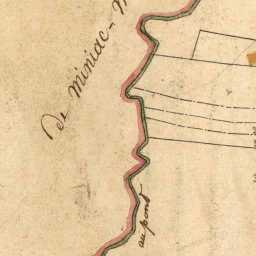 de Miniac-
au pont